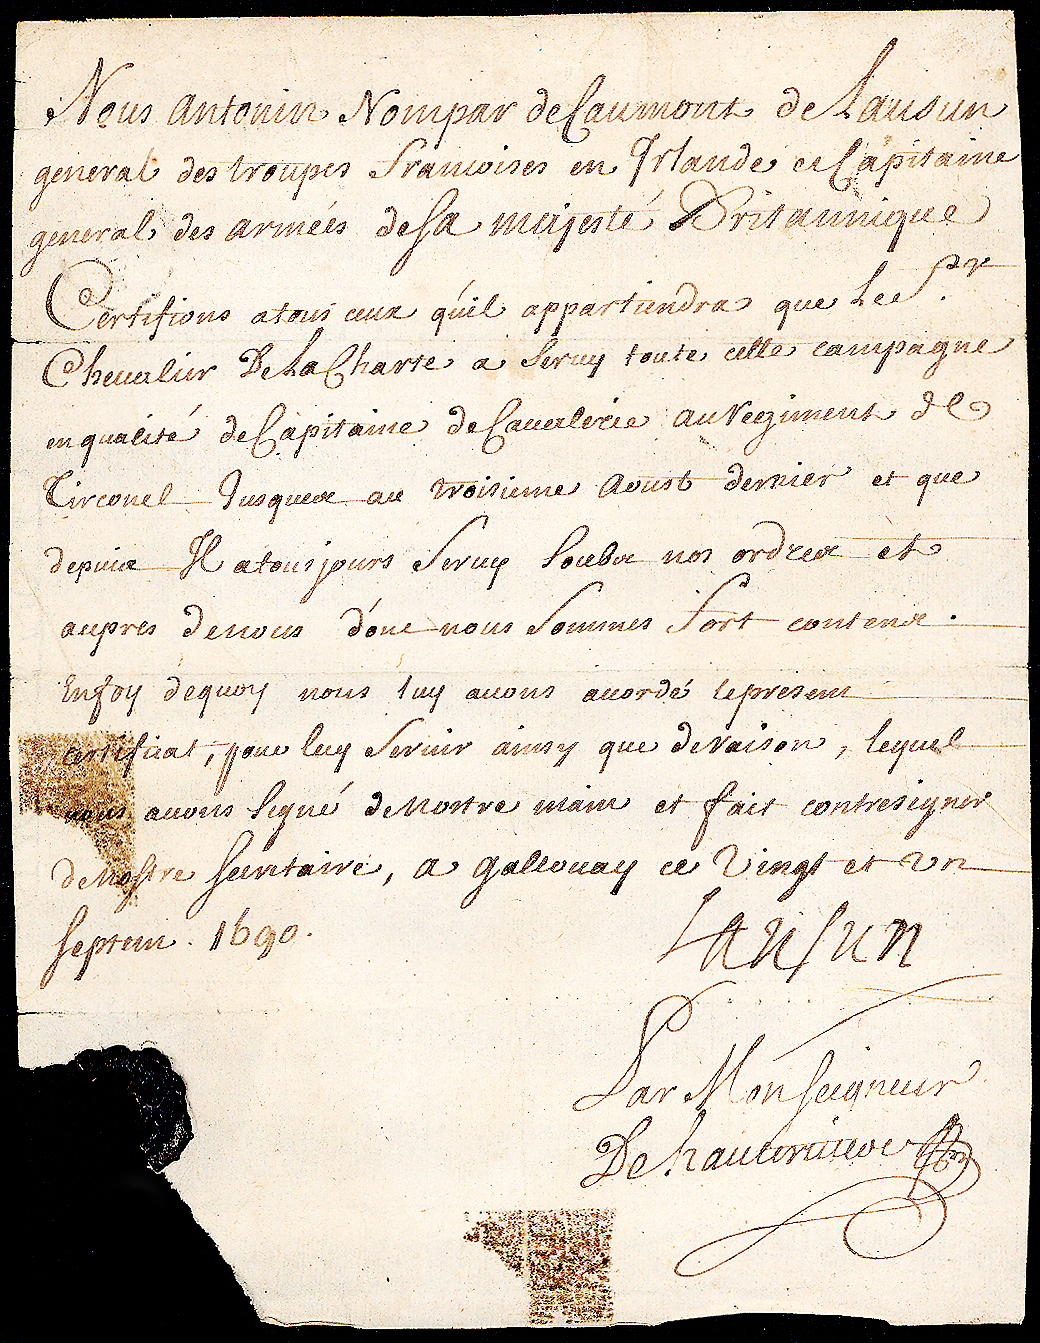 Nous Antonin Nompar de Caumont de Lausun
general des troupes francoises en Irlande et Capitaine
general des armées de sa majesté Britannique
Certifions a tous ceux qu'il appartiendra que Le Sr.
Chevalier De La Charte a servy toute cette campagne
en qualité de Capitaine de Cavalerie au regiment de
Tirconel Jusques au troisieme aoust dernier et que
depuis Il a tousjours servy soubs nos ordres et
aupres de nous d'ont nous sommes fort contens.
En foy de quoy nous luy avons accordé le present
certificat, pour luy servir ainsy que de raison, lequel
nous avons signé de nostre main et fait contresigner
de nostre secretaire, a gallouay ce vingt et un
septem. 1690.
Lausun
Par Monseigneur